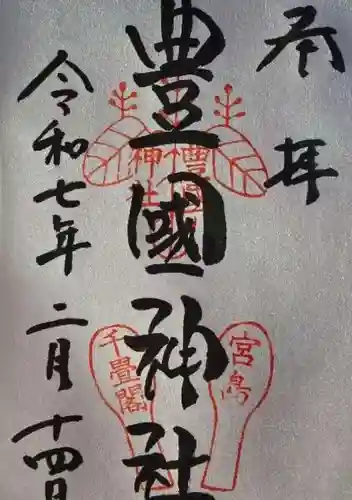 奉拝
豊國神社
令和七年
二月
十四日
豊國
神社
宮島
千畳閣